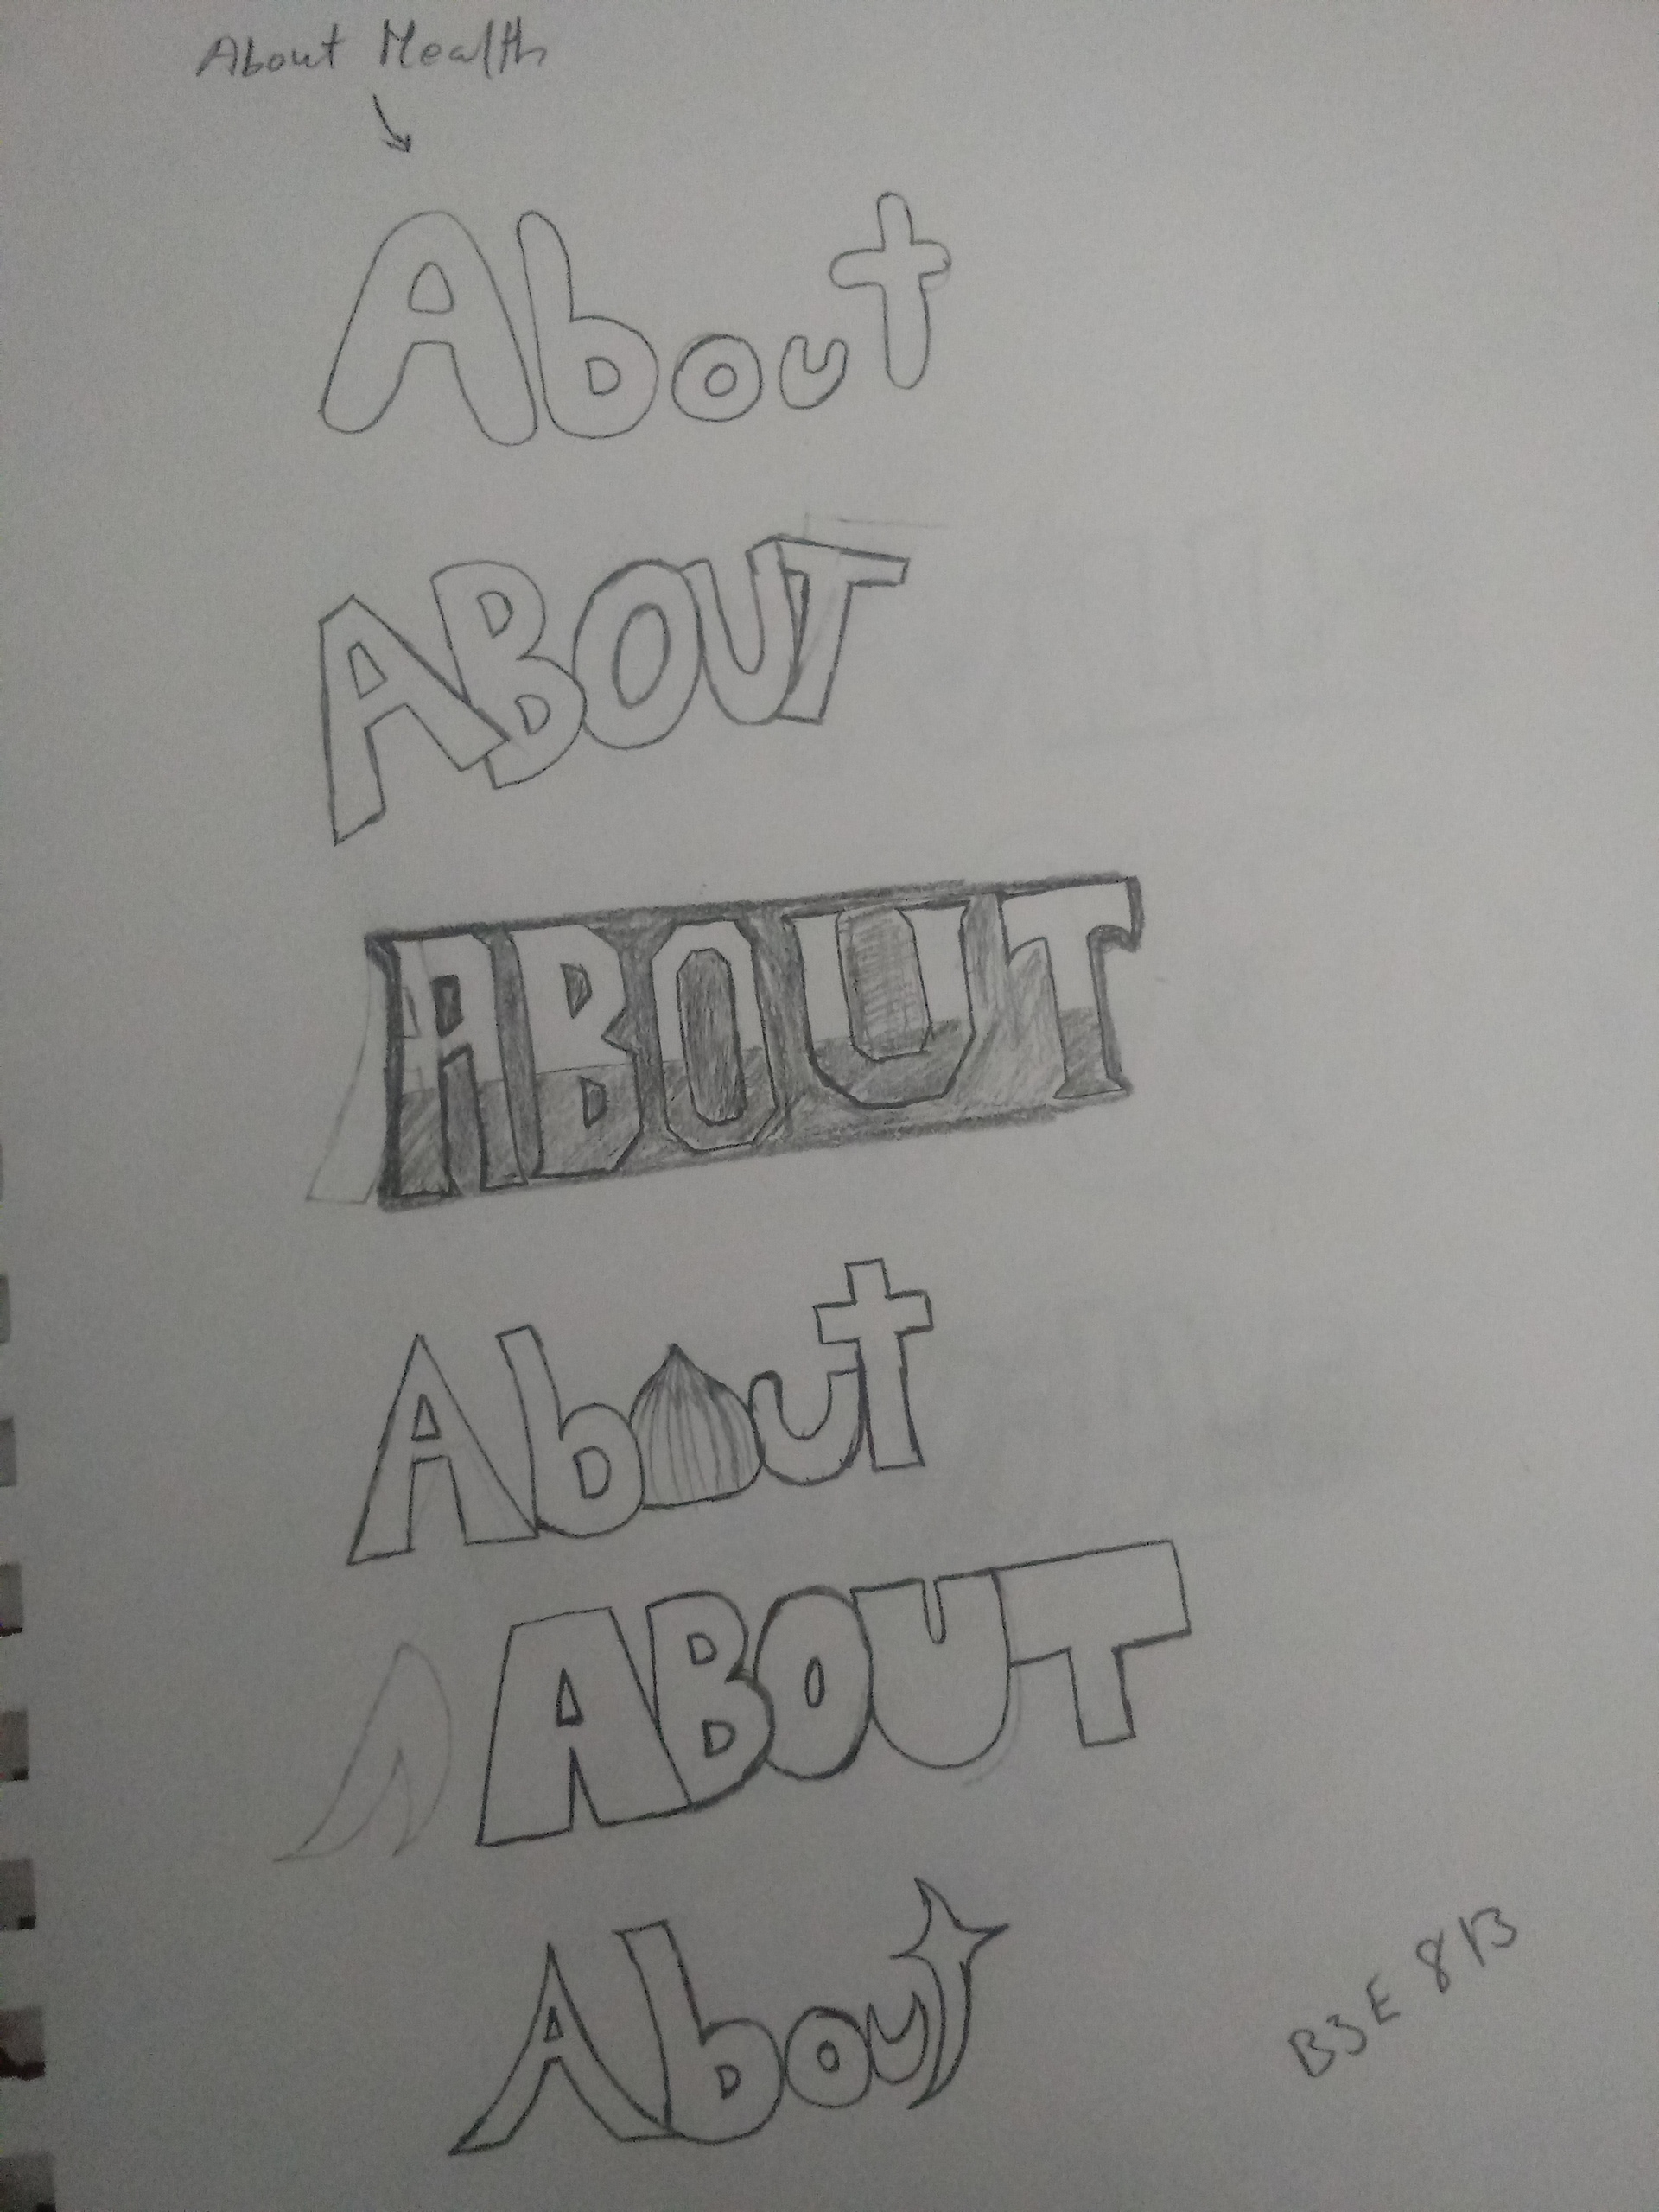 About Health
About
ABOUT
ABOUT
About
ABOUT
About
B3E